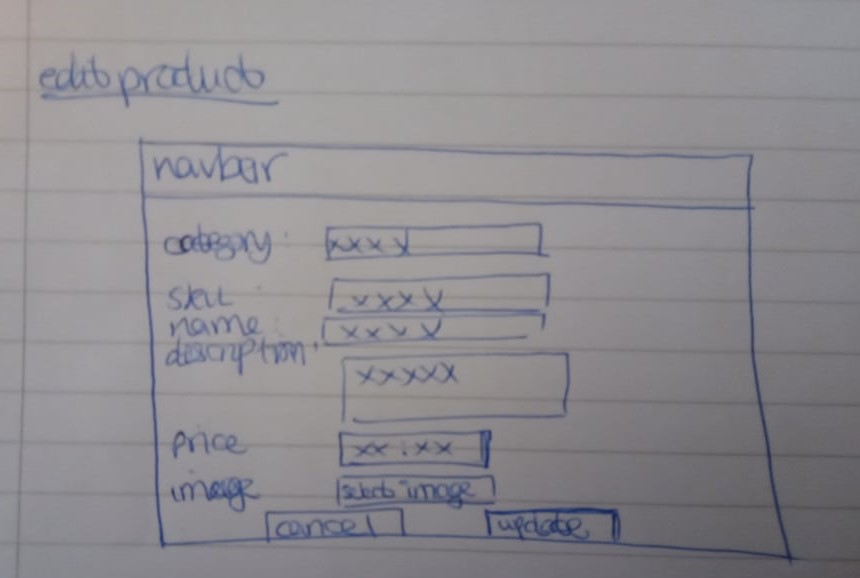 edit product
navbar
category: xxxx
sku: xxxx
name: xxxx
description:
xxxxx
price xx.xx
image select image
cancel update